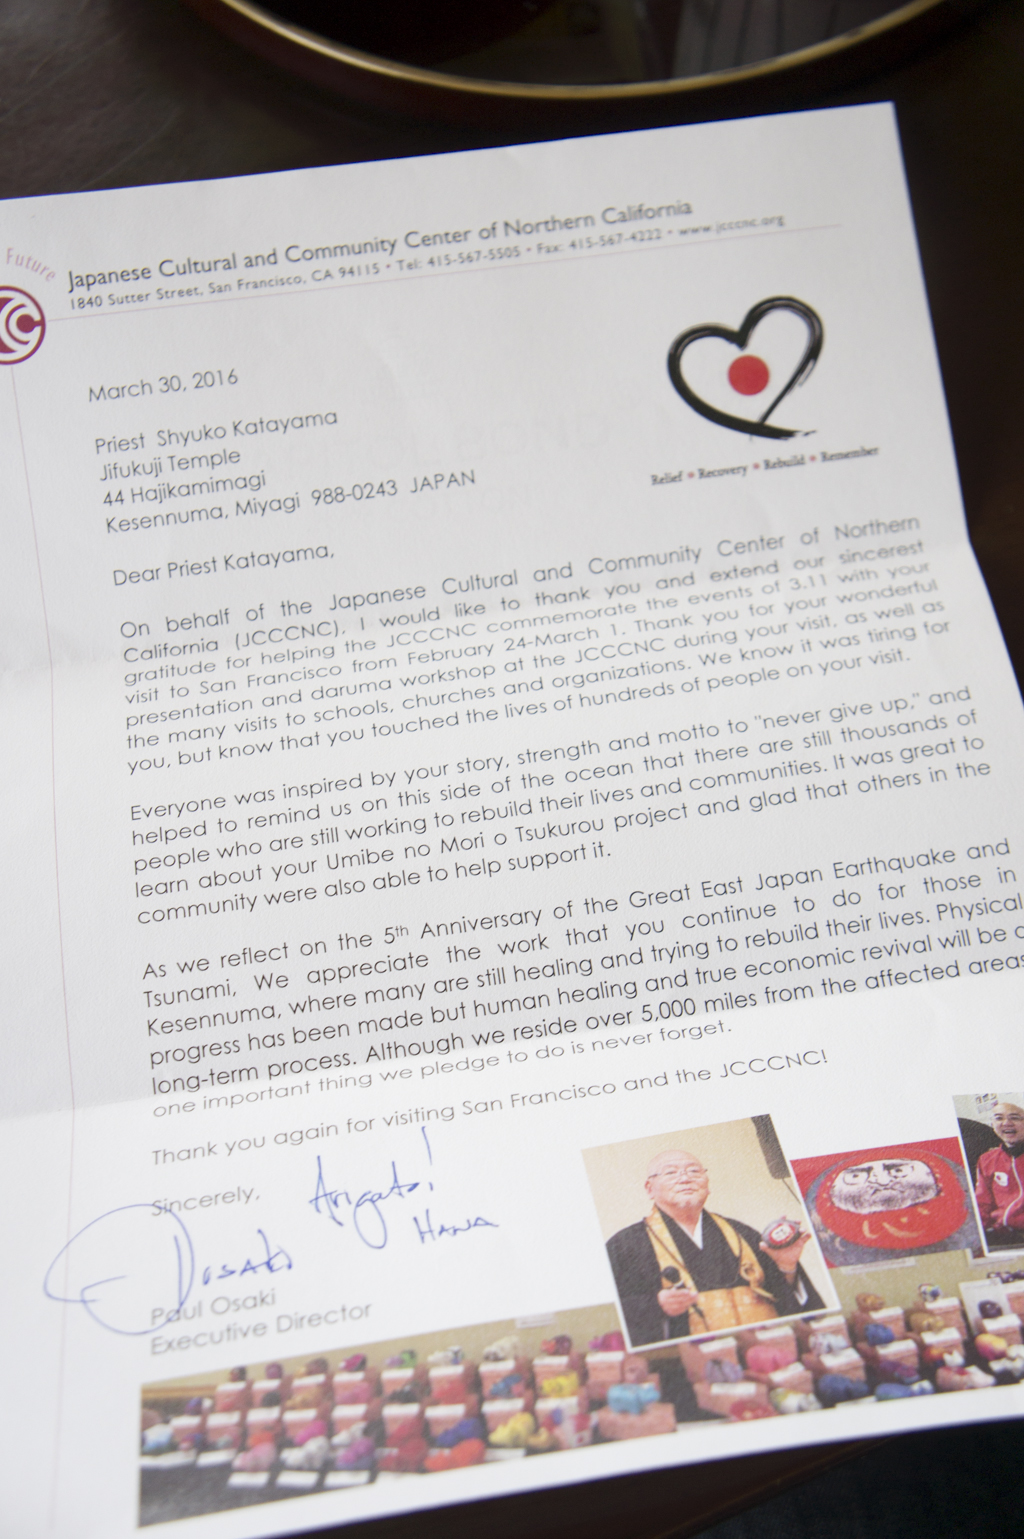 Future
Japanese Cultural and Community Center of Northern California
1840 Sutter Street, San Francisco, CA 94115 • Tel: 415-567-5505 • Fax: 415-567-4222 • www.jcccnc.org
March 30, 2016
Relief • Recovery • Rebuild • Remember
Priest Shyuko Katayama
Jifukuji Temple
44 Hajikamimagi
Kesennuma, Miyagi 988-0243 JAPAN
Dear Priest Katayama,
On behalf of the Japanese Cultural and Community Center of Northern
California (JCCCNC), I would like to thank you and extend our sincerest
gratitude for helping the JCCCNC commemorate the events of 3.11 with your
visit to San Francisco from February 24-March 1. Thank you for your wonderful
presentation and daruma workshop at the JCCCNC during your visit, as well as
the many visits to schools, churches and organizations. We know it was tiring for
you, but know that you touched the lives of hundreds of people on your visit.
Everyone was inspired by your story, strength and motto to "never give up," and
helped to remind us on this side of the ocean that there are still thousands of
people who are still working to rebuild their lives and communities. It was great to
learn about your Umibe no Mori o Tsukurou project and glad that others in the
community were also able to help support it.
As we reflect on the 5th Anniversary of the Great East Japan Earthquake and
Tsunami, We appreciate the work that you continue to do for those in
Kesennuma, where many are still healing and trying to rebuild their lives. Physical
progress has been made but human healing and true economic revival will be a
long-term process. Although we reside over 5,000 miles from the affected areas
one important thing we pledge to do is never forget.
Thank you again for visiting San Francisco and the JCCCNC!
Sincerely,
Arigato!
HANA
Osaki
Paul Osaki
Executive Director